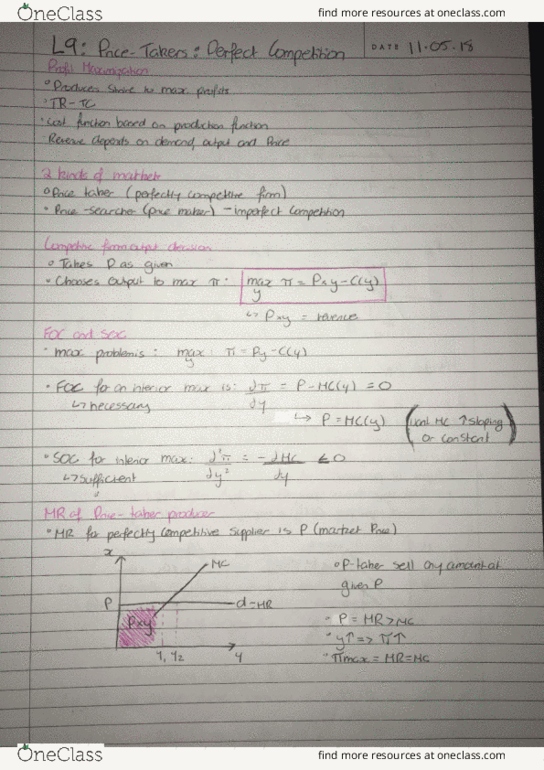 OneClass find more resources at oneclass.com
L9: Price-Takers: Perfect Competition DATE 11.05.18
Profit Maximization
• Producers strive to max profits
• TR-TC
• Cost function based on production function
Revenue depends on demand, output and Price
2 kinds of markets
• Price taker (perfectly competitive firm)
• Price-searcher (price maker) - imperfect competition
Competitive firm output decision
• Takes P as given
• Chooses output to max π: max y π = P×y - C(y)
↳ P×y = revenues
FOC and SOC
• max problem is: max y : π = Py - C(y)
• FOC for an interior max is: ∂π/∂y = P - MC(y) = 0
↳ necessary
↳ P = MC(y) (want MC ↑ sloping or constant)
• SOC for interior max: ∂²π/∂y² = -∂MC/∂y ≤ 0
↳ sufficient
MR of Price-taker producer
• MR for perfectly competitive supplier is P (market Price)
x
MC
P
d=MR
Pxy
y1 y2 y
• P-taker sell any amount at
given P
• P = MR > MC
• y↑ => π↑
• πmax = MR = MC
OneClass find more resources at oneclass.com